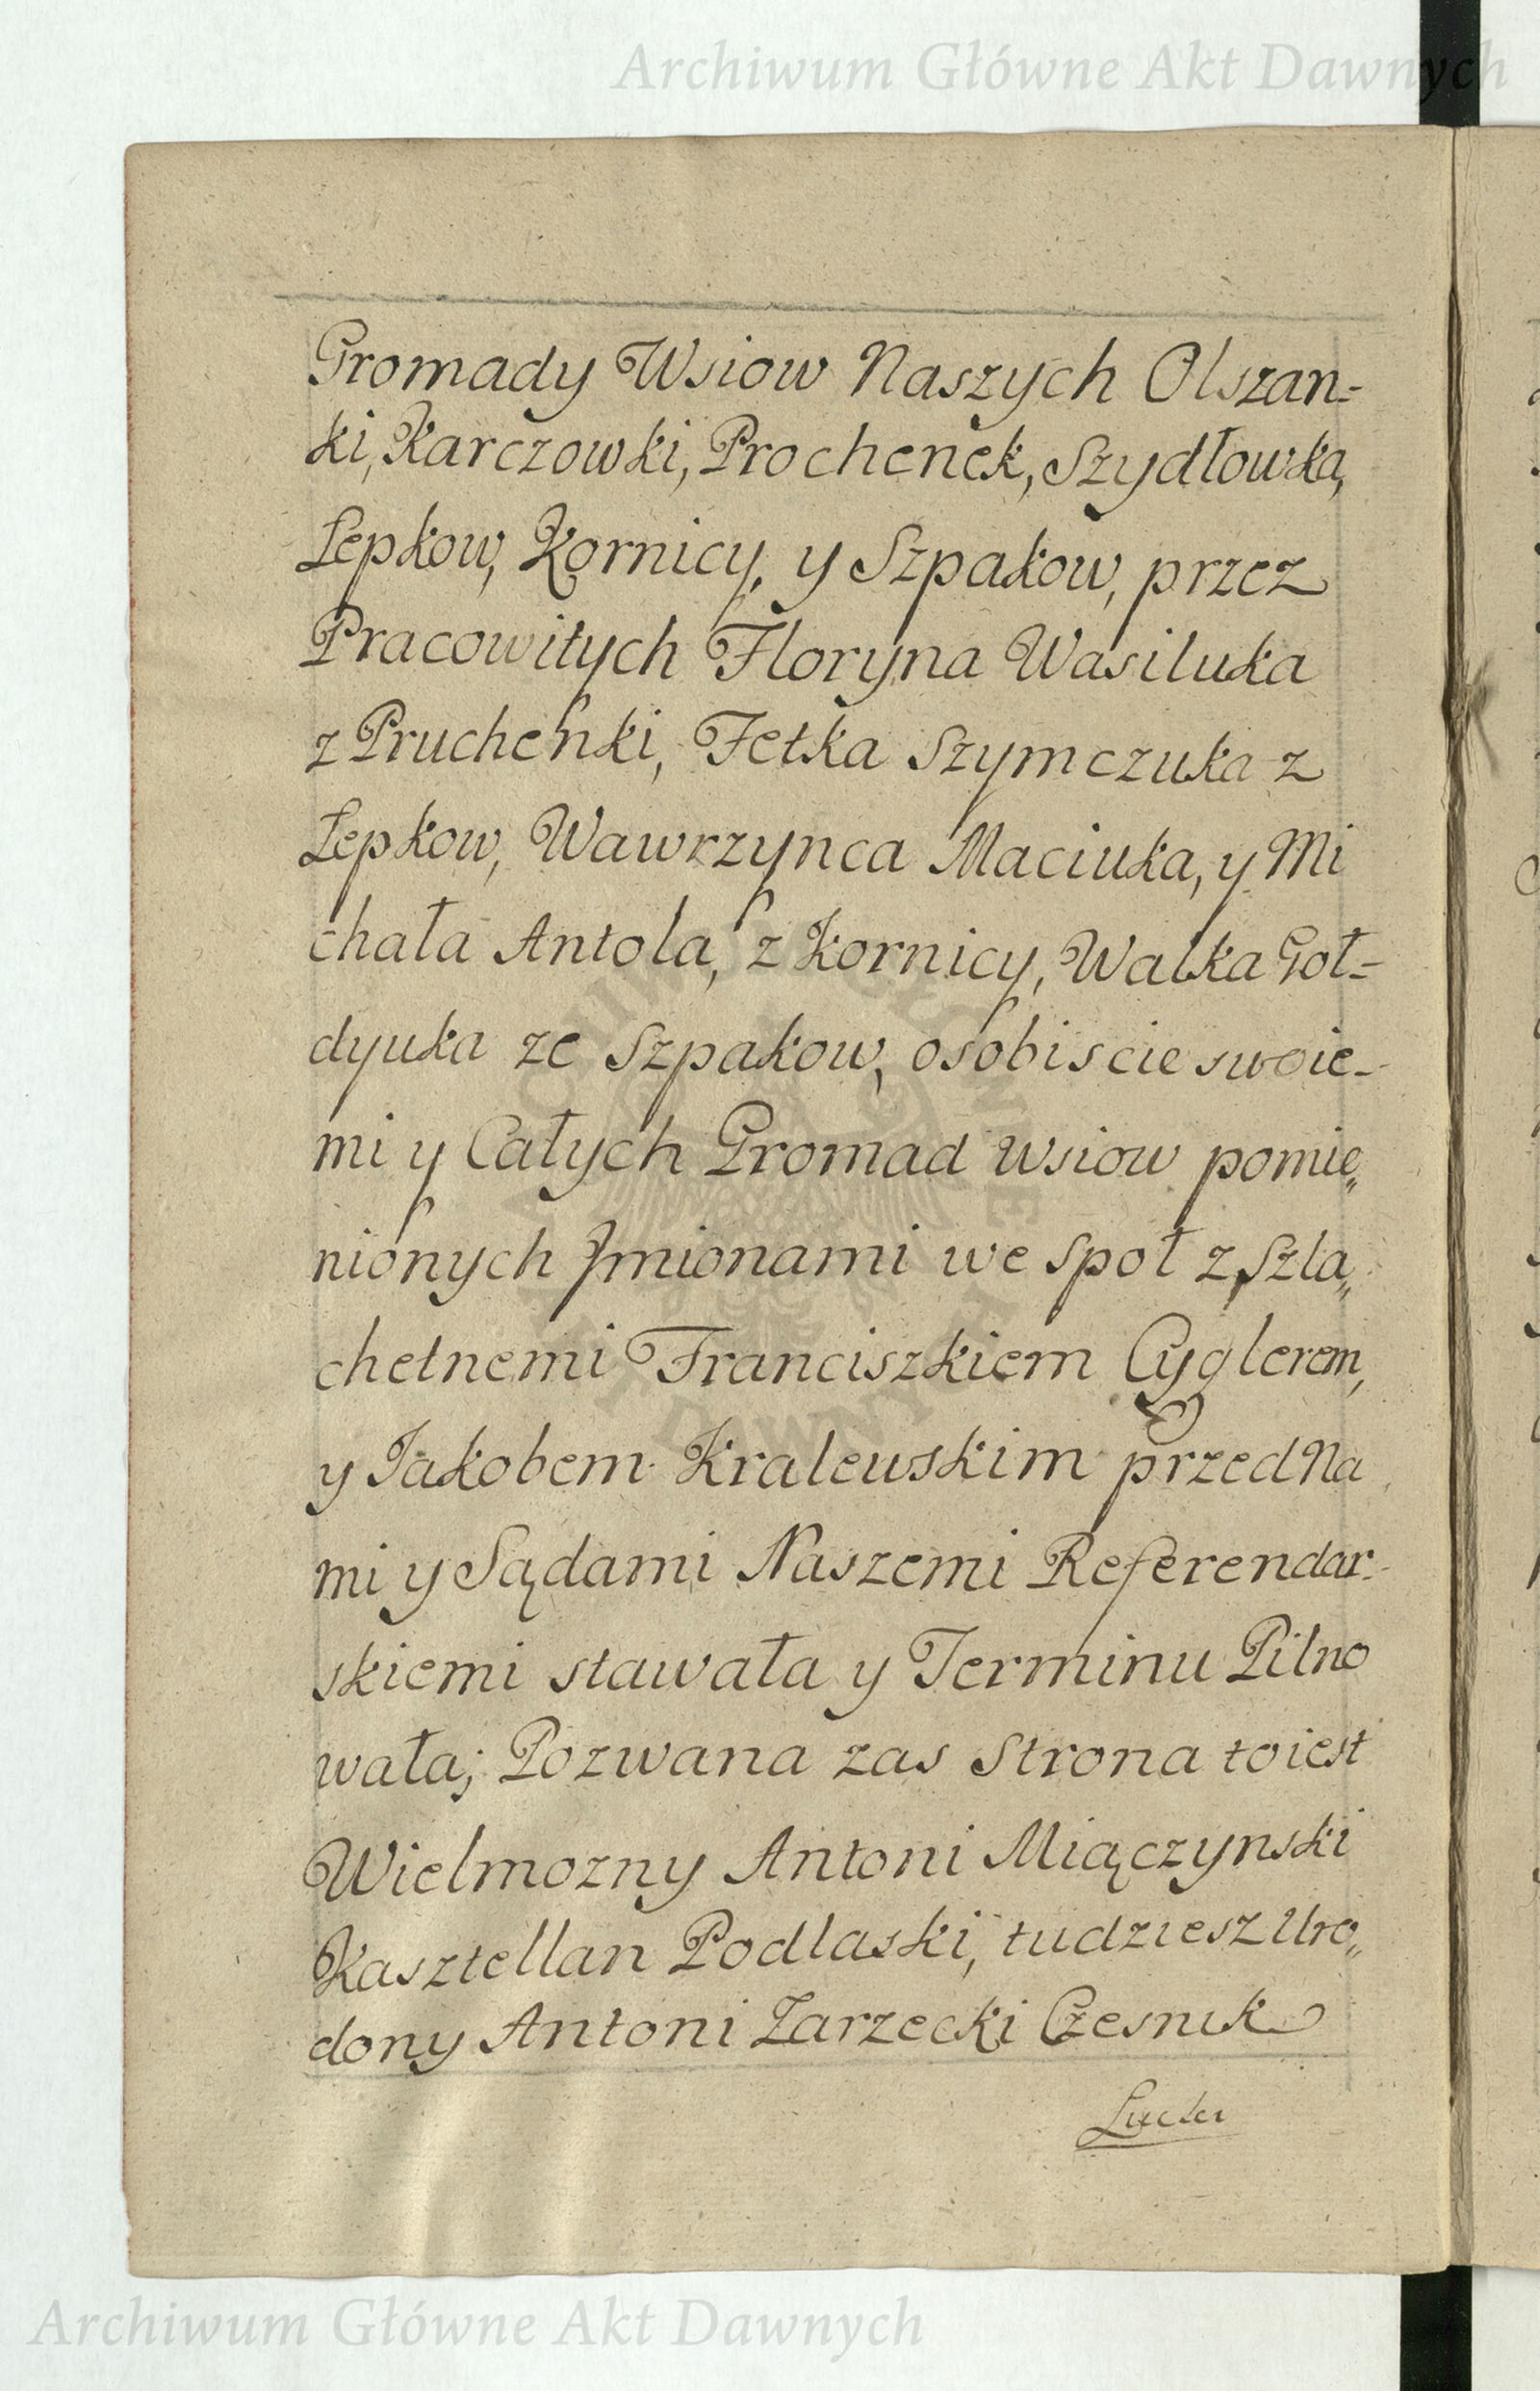 Archiwum Główne Akt Dawnych
Gromady Wsiow Naszych Olszan-
ki, Karczowki, Prochenek, Szydłowka,
Łepkow, Kornicy, y Szpakow, przez
Pracowitych Floryna Wasiluka
z Pruchenki, Fetka Szymczuka z
Łepkow, Wawrzynca Maciuka, y Mi
chała Antola, z Kornicy, Walka Goł-
dyuka ze Szpakow, osobiscie swoie-
mi y Całych Gromad wsiow pomie„
nionych Jmionami we społ z Szla„
chetnemi Franciszkiem Cyglerem,
y Jakobem Kralewskim przed Na
mi y Sądami Naszemi Referendar-
skiemi stawała y Terminu Pilno
wała; Pozwana zas Strona to iest
Wielmozny Antoni Miączynski
Kasztellan Podlaski, tudziesz Uro„
dony Antoni Zarzecki Czesnik
Archiwum Główne Akt Dawnych